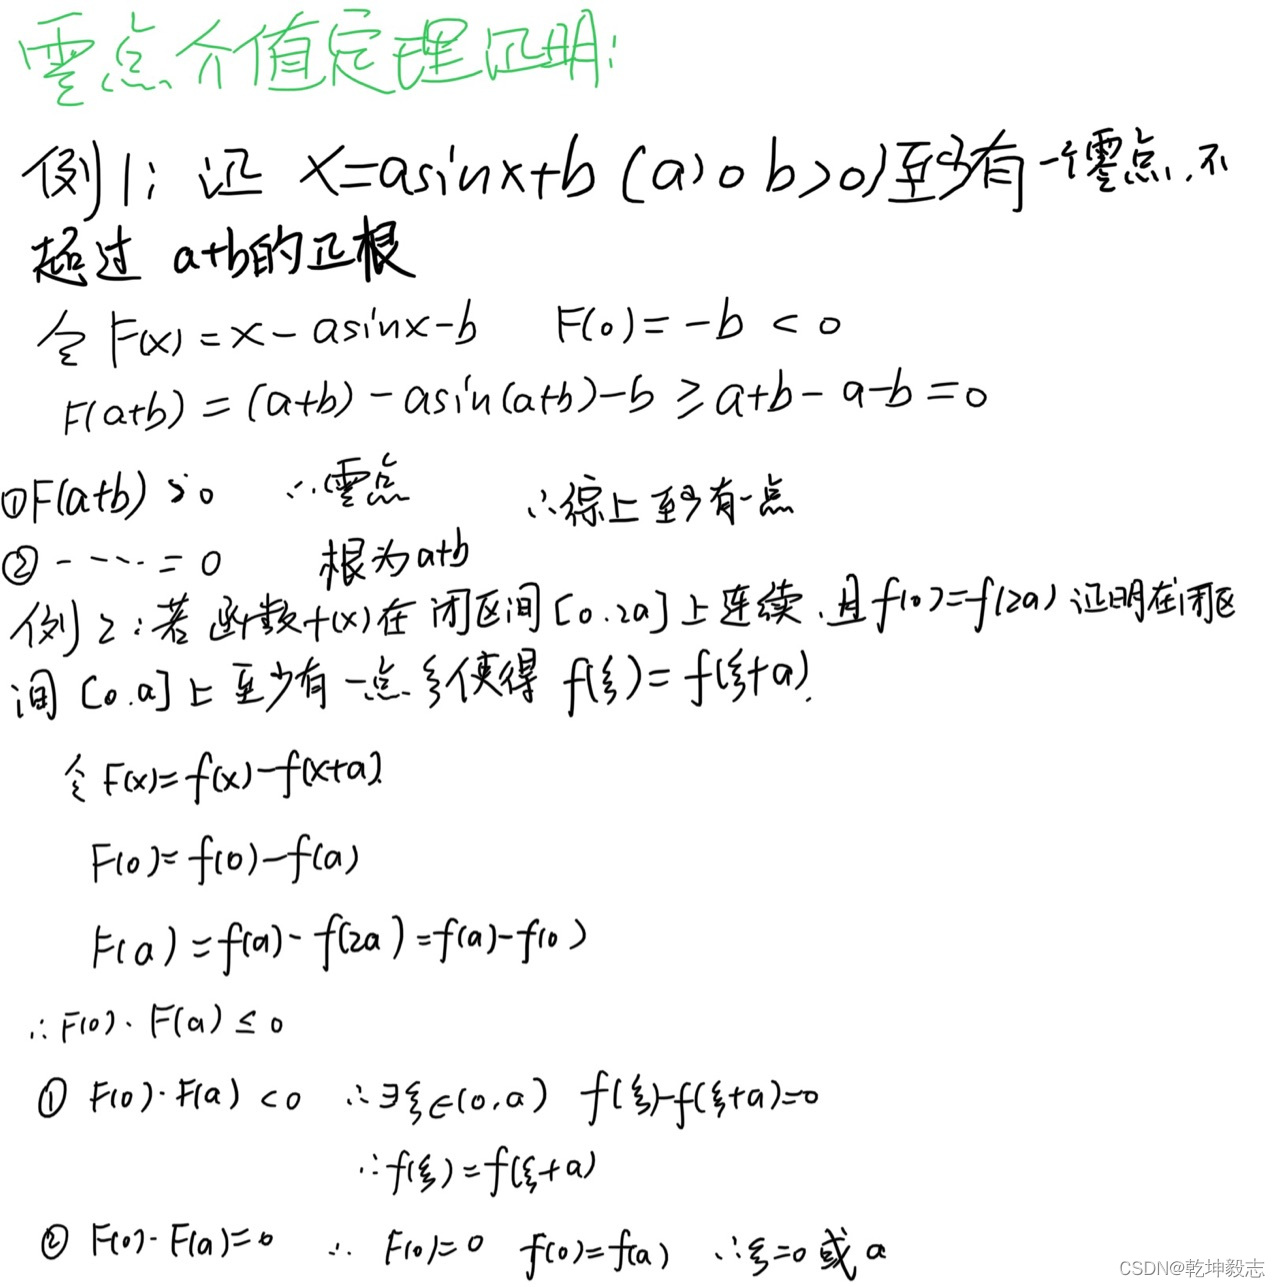 零点介值定理证明:
例1: 证 x=asinx+b (a>0 b>0)至少有一个零点,不
超过 a+b的正根
令 F(x)=x-asinx-b F(0)=-b<0
F(a+b)=(a+b)-asin(a+b)-b≥a+b-a-b=0
①F(a+b)>0 ∴零点 ∴综上至少有一点
②-----=0 根为a+b
例2:若函数f(x)在闭区间[0.2a]上连续.且f(0)=f(2a)证明在闭区
间[0.a]上至少有一点ξ使得 f(ξ)=f(ξ+a).
令F(x)=f(x)-f(x+a)
F(0)=f(0)-f(a)
F(a)=f(a)-f(2a)=f(a)-f(0)
∴F(0)·F(a)≤0
① F(0)·F(a)<0 ∴∃ξ∈(0,a) f(ξ)-f(ξ+a)=0
∴f(ξ)=f(ξ+a)
② F(0)·F(a)=0 ∴ F(0)=0 f(0)=f(a) ∴ξ=0或a
CSDN@乾坤毅志